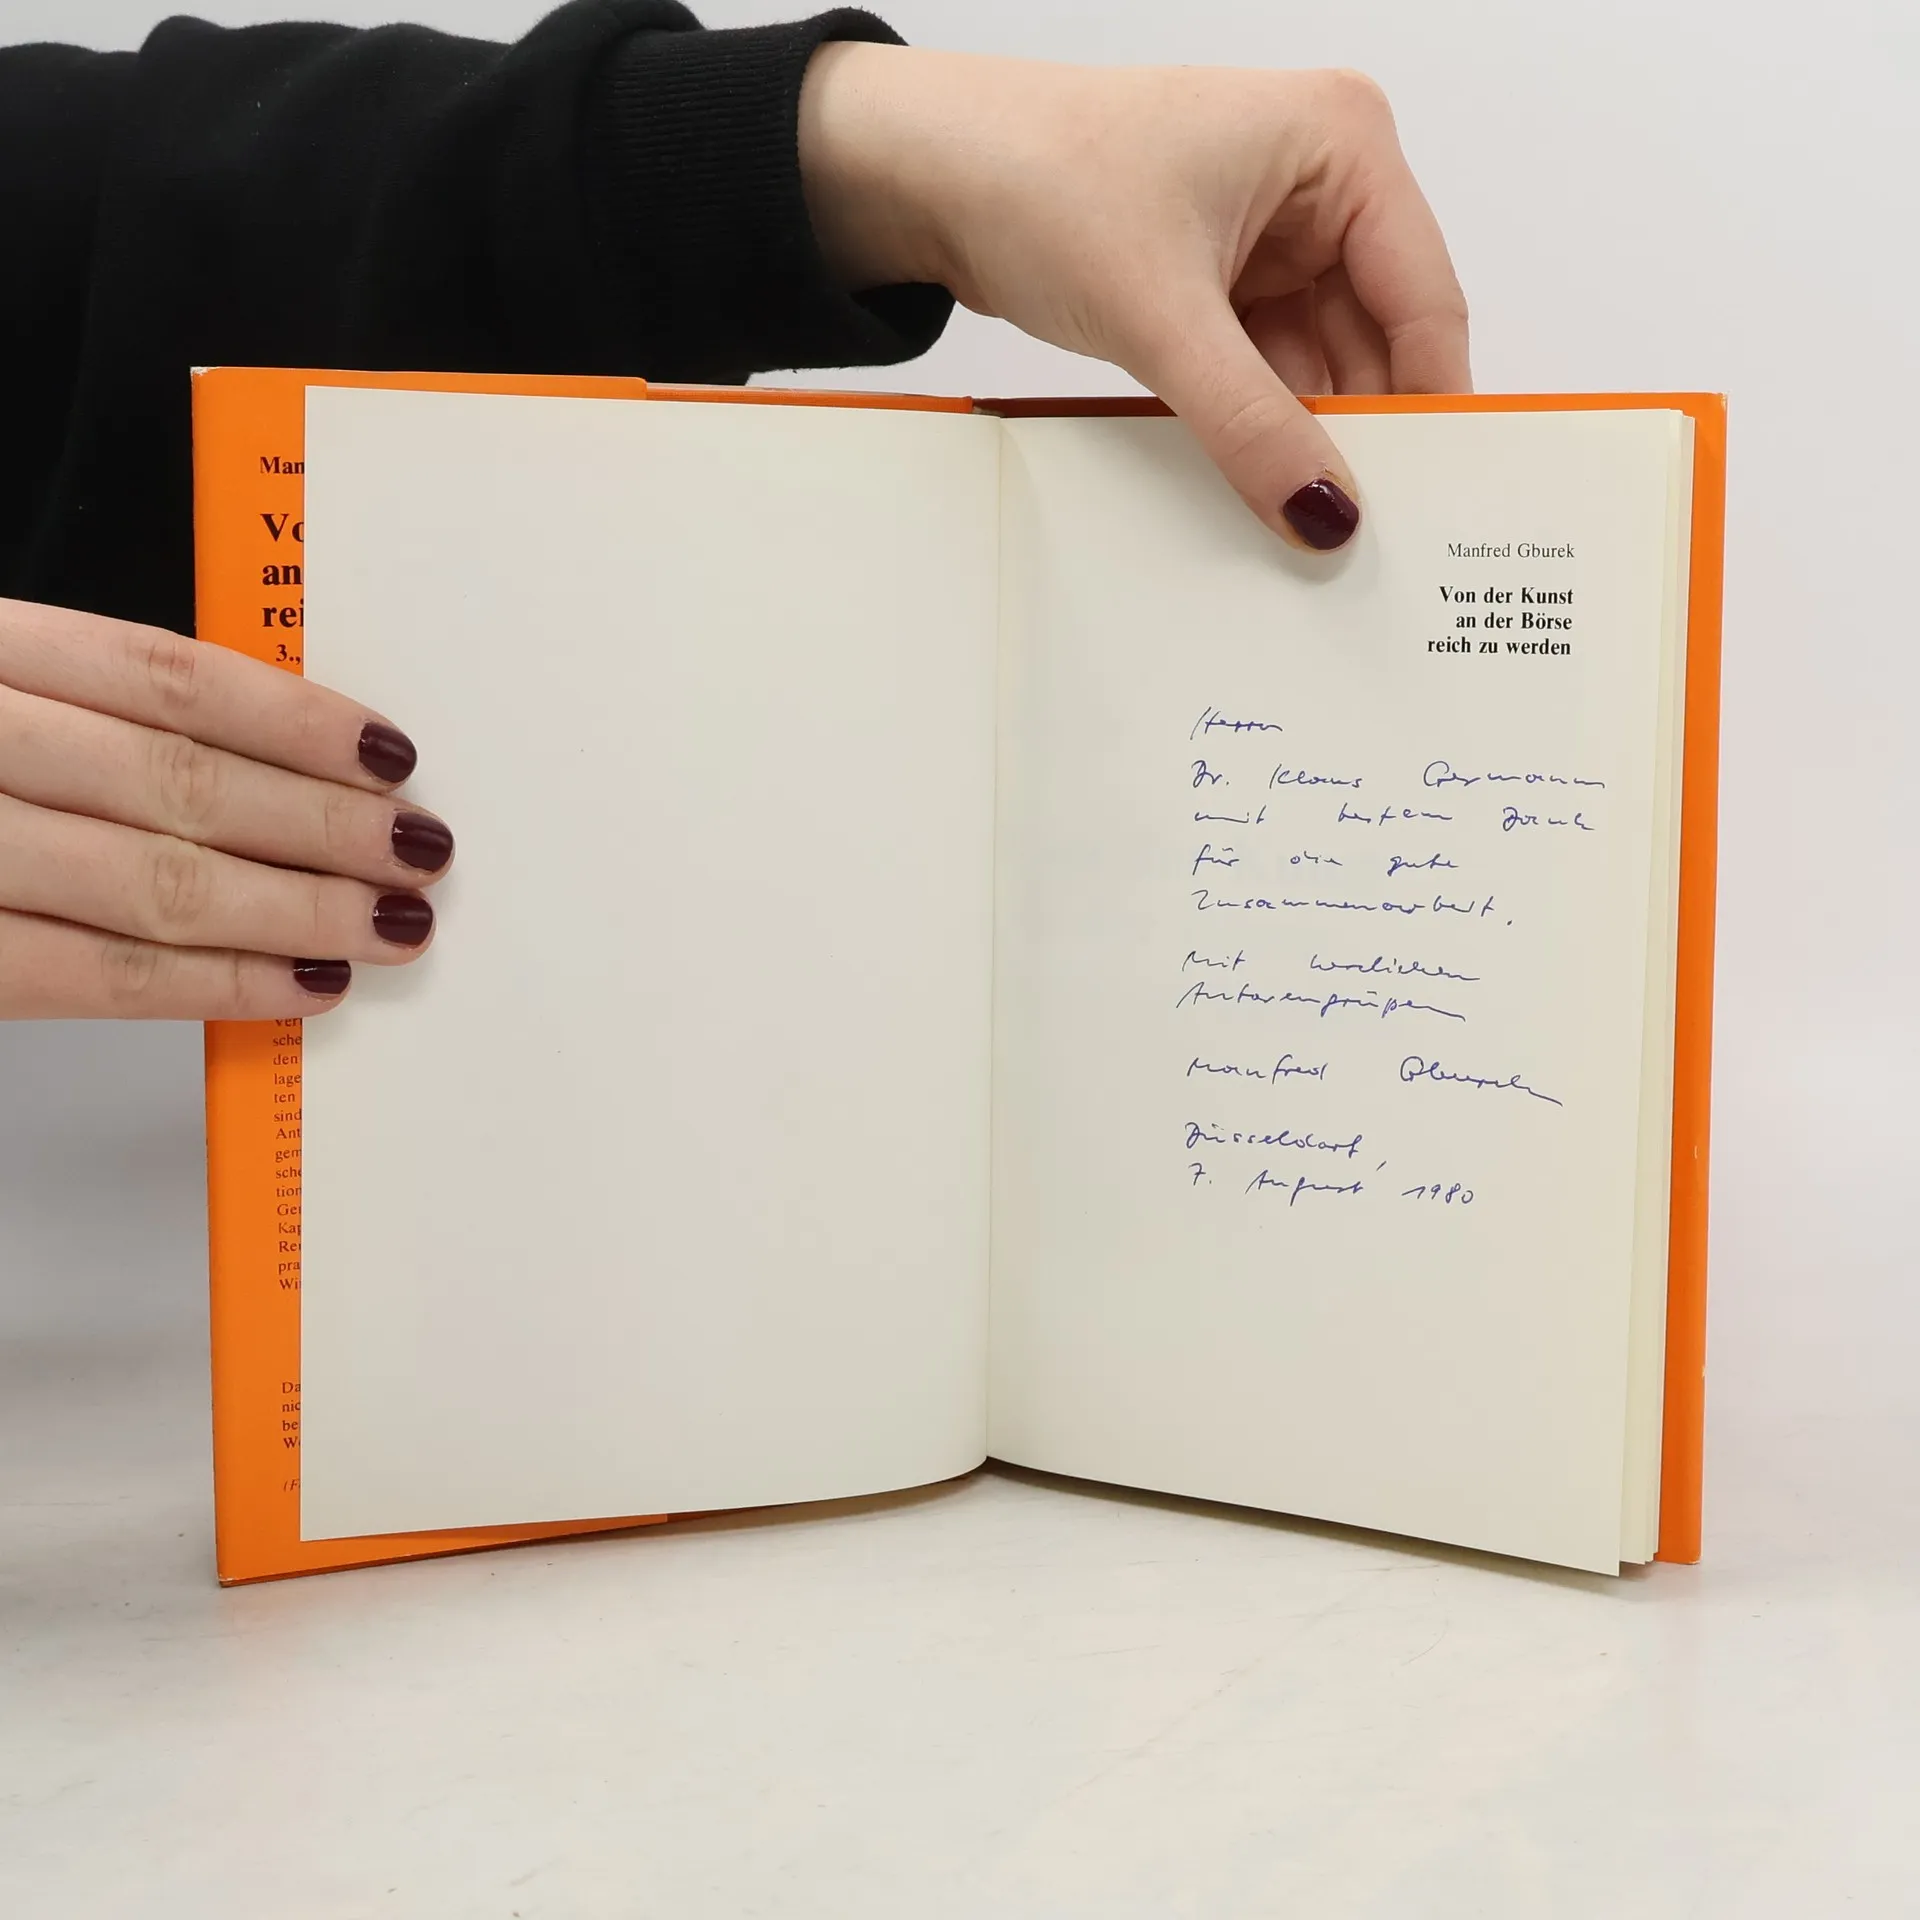 Man
Vo
an
rei
3.,
Vert
sche
den
lage
ten
sind
Ant
gem
sche
tion
Ger
Kap
Ren
pra
Wi
Da
nic
be
We
(F
Manfred Gburek
Von der Kunst
an der Börse
reich zu werden
Herrn
Dr. Klaus Germann
mit bestem Dank
für die gute
Zusammenarbeit.
Mit herzlichen
Autorengrüßen
Manfred Gburek
Düsseldorf,
7. August 1980